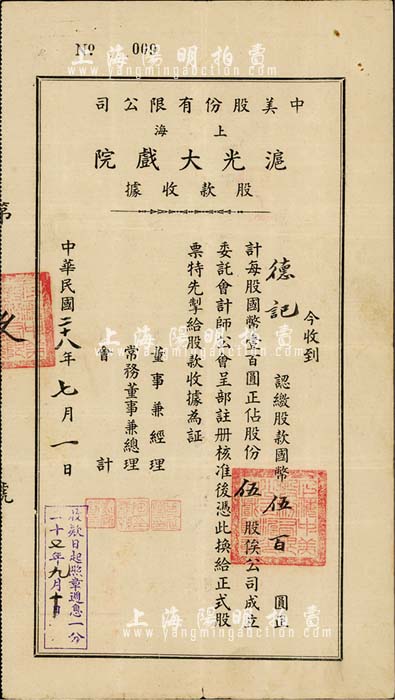 № 069
中美股份有限公司
上海
滬光大戲院
股款收據
今收到
德記 認繳股款國幣伍百圓正
計每股國幣壹百圓正佔股份伍股俟公司成立
委託會計師公會呈部註册核准後憑此換給正式股
票特先掣給股款收據為証
董事兼經理
常務董事兼總理
會計
中華民國二十八年七月一日
股款日起照章週息一分
第
號
上海陽明拍賣
www.yangmingauction.com
上海陽明拍賣
www.yangmingauction.com
上海陽明拍賣
www.yangmingauction.com